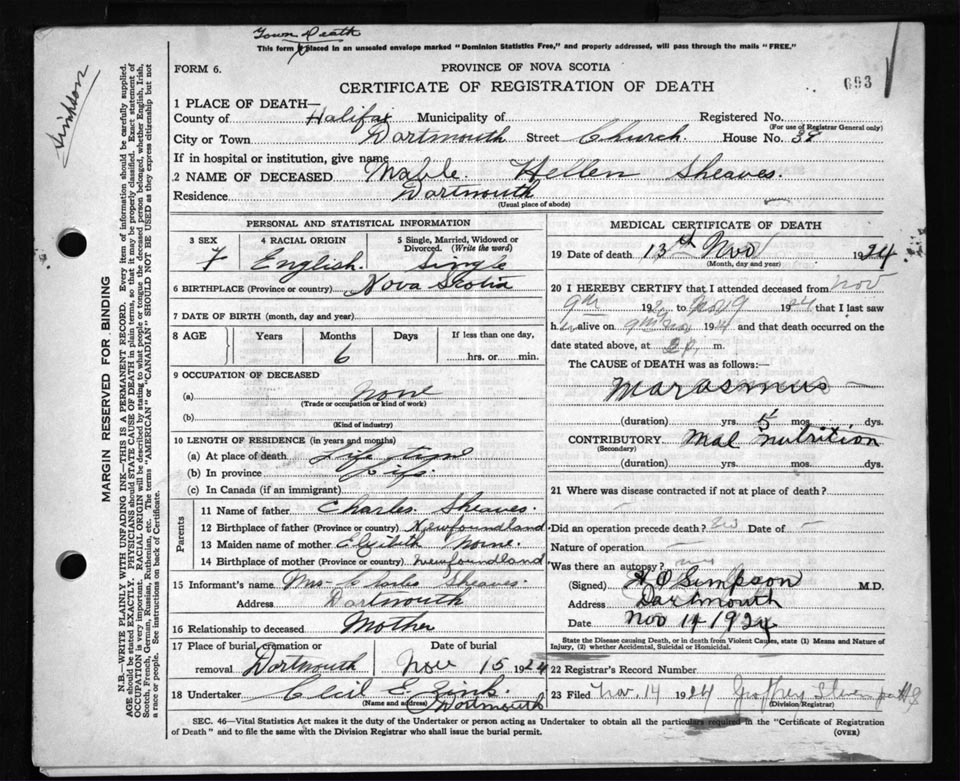 Town Death
This form placed in an unsealed envelope marked "Dominion Statistics Free," and properly addressed, will pass through the mails "FREE."
FORM 6.
PROVINCE OF NOVA SCOTIA
693
CERTIFICATE OF REGISTRATION OF DEATH
Simpson
MARGIN RESERVED FOR BINDING
N.B.—WRITE PLAINLY WITH UNFADING INK—THIS IS A PERMANENT RECORD. Every item of information should be carefully supplied.
AGE should be stated EXACTLY. PHYSICIANS should STATE CAUSE OF DEATH in plain terms, so that it may be properly classified. Exact statement of
OCCUPATION is very important. RACIAL ORIGIN will be described by stating to what people or tongue the deceased person belonged, whether English, Irish,
Scotch, French, German, Russian, Ruthenian, etc. The terms "AMERICAN" or "CANADIAN" SHOULD NOT BE USED as they express citizenship but not
a race or people. See instructions on back of Certificate.
1 PLACE OF DEATH—
County of Halifax Municipality of Registered No.
(For use of Registrar General only)
City or Town Dartmouth Street Church House No. 38
If in hospital or institution, give name
2 NAME OF DECEASED Mable Hellen Sheaves.
Residence Dartmouth
(Usual place of abode)
PERSONAL AND STATISTICAL INFORMATION
3 SEX F
4 RACIAL ORIGIN English.
5 Single, Married, Widowed or Divorced. (Write the word) Single
6 BIRTHPLACE (Province or country) Nova Scotia
7 DATE OF BIRTH (month, day and year)
8 AGE Years Months Days If less than one day,
6 hrs. or min.
9 OCCUPATION OF DECEASED
(a) none
(Trade or occupation or kind of work)
(b)
(Kind of industry)
10 LENGTH OF RESIDENCE (in years and months)
(a) At place of death Life time
(b) In province Life.
(c) In Canada (if an immigrant)
Parents
11 Name of father Charles Sheaves.
12 Birthplace of father (Province or country) Newfoundland
13 Maiden name of mother
14 Birthplace of mother (Province or country) Newfoundland
15 Informant's name Mrs Sheaves.
Address Dartmouth
16 Relationship to deceased Mother
17 Place of burial, cremation or removal Dartmouth
Date of burial Nov 15 1924
18 Undertaker Cecil E Zink.
(Name and address) Dartmouth
MEDICAL CERTIFICATE OF DEATH
19 Date of death 13th Nov 1924
(Month, day and year)
20 I HEREBY CERTIFY that I attended deceased from Nov
9th 192 to Nov 9 1924 that I last saw
h alive on 9th Nov 1924 and that death occurred on the
date stated above, at 2 p. m.
The CAUSE OF DEATH was as follows:—
Marasmus
(duration) yrs. 5 mos. dys.
CONTRIBUTORY Mal nutrition
(Secondary)
(duration) yrs. mos. dys.
21 Where was disease contracted if not at place of death?
Did an operation precede death? no Date of —
Nature of operation —
Was there an autopsy?
(Signed) Simpson M.D.
Address Dartmouth
Date Nov 14 1924
State the Disease causing Death, or in death from Violent Causes, state (1) Means and Nature of
Injury, (2) whether Accidental, Suicidal or Homicidal.
22 Registrar's Record Number
23 Filed Nov. 14 1924
(Division Registrar)
SEC. 46—Vital Statistics Act makes it the duty of the Undertaker or person acting as Undertaker to obtain all the particulars required in the "Certificate of Registration
of Death" and to file the same with the Division Registrar who shall issue the burial permit.
(OVER)